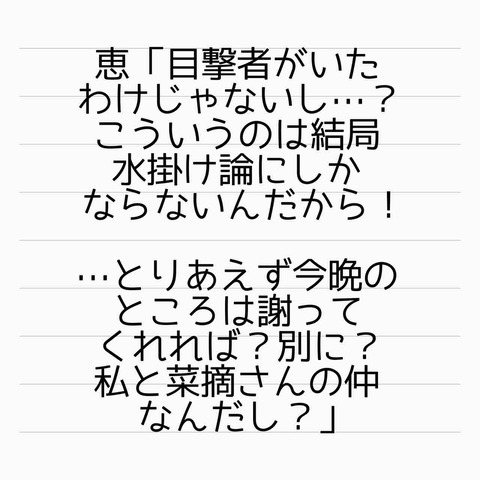 恵「目撃者がいた
わけじゃないし…？
こういうのは結局
水掛け論にしか
ならないんだから！
…とりあえず今晩の
ところは謝って
くれれば？別に？
私と菜摘さんの仲
なんだし？」